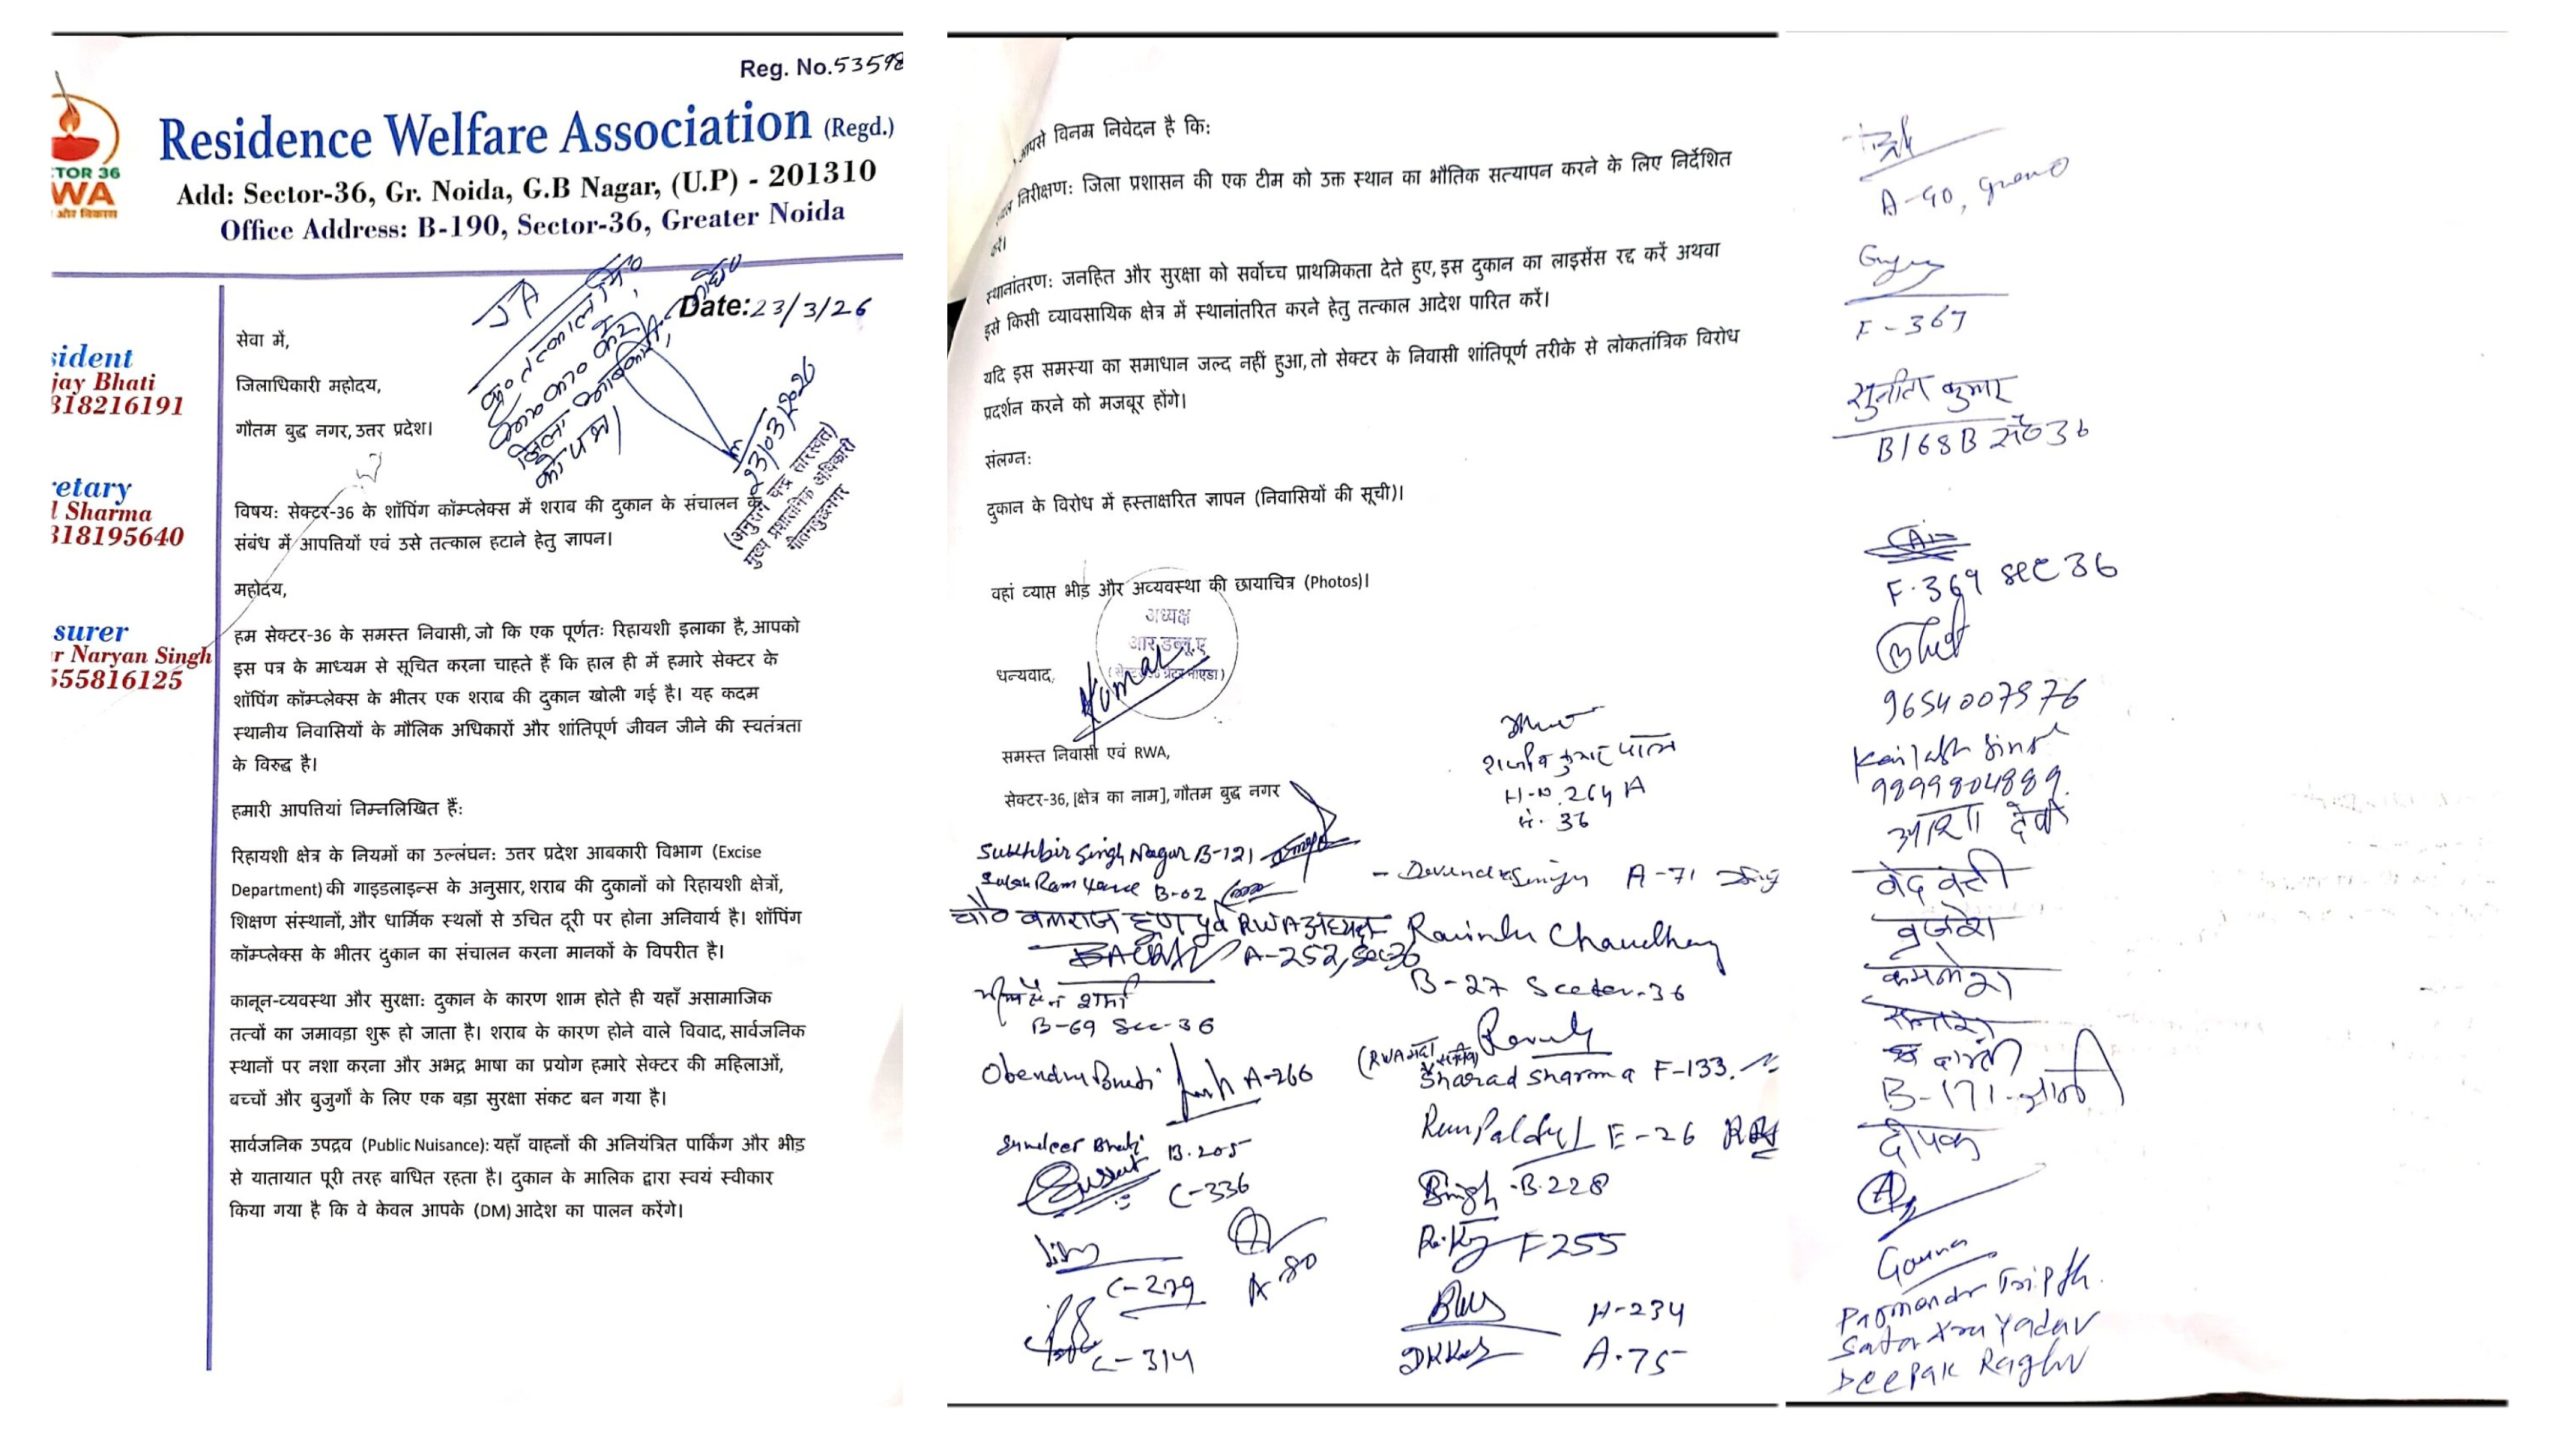 Reg. No.53598
Residence Welfare Association (Regd.)
Add: Sector-36, Gr. Noida, G.B Nagar, (U.P) - 201310
Office Address: B-190, Sector-36, Greater Noida
TOR 36
WA
और विकास
Date:23/3/26
JA
23/03/2026
मुख्य प्रशासनिक अधिकारी
गौतमबुद्धनगर
ident
jay Bhati
318216191
retary
l Sharma
318195640
surer
r Naryan Singh
555816125
सेवा में,
जिलाधिकारी महोदय,
गौतम बुद्ध नगर, उत्तर प्रदेश।
विषय: सेक्टर-36 के शॉपिंग कॉम्प्लेक्स में शराब की दुकान के संचालन के
संबंध में आपत्तियों एवं उसे तत्काल हटाने हेतु ज्ञापन।
महोदय,
हम सेक्टर-36 के समस्त निवासी, जो कि एक पूर्णतः रिहायशी इलाका है, आपको
इस पत्र के माध्यम से सूचित करना चाहते हैं कि हाल ही में हमारे सेक्टर के
शॉपिंग कॉम्प्लेक्स के भीतर एक शराब की दुकान खोली गई है। यह कदम
स्थानीय निवासियों के मौलिक अधिकारों और शांतिपूर्ण जीवन जीने की स्वतंत्रता
के विरुद्ध है।
हमारी आपत्तियां निम्नलिखित हैं:
रिहायशी क्षेत्र के नियमों का उल्लंघन: उत्तर प्रदेश आबकारी विभाग (Excise
Department) की गाइडलाइन्स के अनुसार, शराब की दुकानों को रिहायशी क्षेत्रों,
शिक्षण संस्थानों, और धार्मिक स्थलों से उचित दूरी पर होना अनिवार्य है। शॉपिंग
कॉम्प्लेक्स के भीतर दुकान का संचालन करना मानकों के विपरीत है।
कानून-व्यवस्था और सुरक्षा: दुकान के कारण शाम होते ही यहाँ असामाजिक
तत्वों का जमावड़ा शुरू हो जाता है। शराब के कारण होने वाले विवाद, सार्वजनिक
स्थानों पर नशा करना और अभद्र भाषा का प्रयोग हमारे सेक्टर की महिलाओं,
बच्चों और बुजुर्गों के लिए एक बड़ा सुरक्षा संकट बन गया है।
सार्वजनिक उपद्रव (Public Nuisance): यहाँ वाहनों की अनियंत्रित पार्किंग और भीड़
से यातायात पूरी तरह बाधित रहता है। दुकान के मालिक द्वारा स्वयं स्वीकार
किया गया है कि वे केवल आपके (DM) आदेश का पालन करेंगे।
आपसे विनम्र निवेदन है कि:
निरीक्षण: जिला प्रशासन की एक टीम को उक्त स्थान का भौतिक सत्यापन करने के लिए निर्देशित
करें।
स्थानांतरण: जनहित और सुरक्षा को सर्वोच्च प्राथमिकता देते हुए, इस दुकान का लाइसेंस रद्द करें अथवा
इसे किसी व्यावसायिक क्षेत्र में स्थानांतरित करने हेतु तत्काल आदेश पारित करें।
यदि इस समस्या का समाधान जल्द नहीं हुआ, तो सेक्टर के निवासी शांतिपूर्ण तरीके से लोकतांत्रिक विरोध
प्रदर्शन करने को मजबूर होंगे।
संलग्न:
दुकान के विरोध में हस्ताक्षरित ज्ञापन (निवासियों की सूची)।
वहां व्याप्त भीड़ और अव्यवस्था की छायाचित्र (Photos)।
अध्यक्ष
आर.डब्लू.ए
धन्यवाद,
Kumar
समस्त निवासी एवं RWA,
सेक्टर-36, [क्षेत्र का नाम], गौतम बुद्ध नगर
H-N. 264 A
36
Sukhbir Singh Nagar B-121
B-02
Devender Singh A-71
RWA अध्यक्ष
A-252, Sec-36
Ravinder Chaudhary
B-27 Sector-36
शर्मा
B-69 Sec-36
A-266
(RWA
Sharad Sharma F-133.
B.205
E-26
C-336
Singh B.228
F 255
C-279
A-80
H-234
C-314
A-75
A-90,
F-367
सुनीता कुमार
B168B से० 36
F-369 sec 36
9654007976
Kailash Singh
9899804889
आशा देवी
वेदवती
बृजेश
कमलेश
B-171
दीपक
Gaurav
Parmanand Tripathi
Yadav
Deepak Raghav